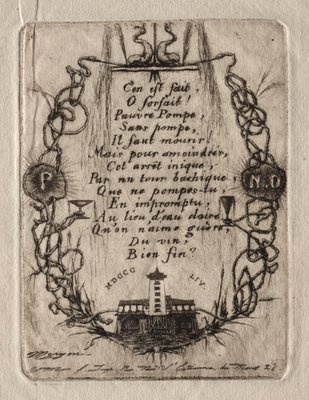 C'en est fait
O forfait!
Pauvre Pompe,
Sans pompe,
Il faut mourir!
Mais pour amoindrir,
Cet arrêt inique,
Par un tour bachique,
Que ne pompes-tu,
En impromptu,
Au lieu d'eau claire,
Qu'on n'aime guère,
Du vin,
Bien fin?
P
N.D
MDCCC LIV.
Meryon
Imp. R. N. St Etienne du Mont 26